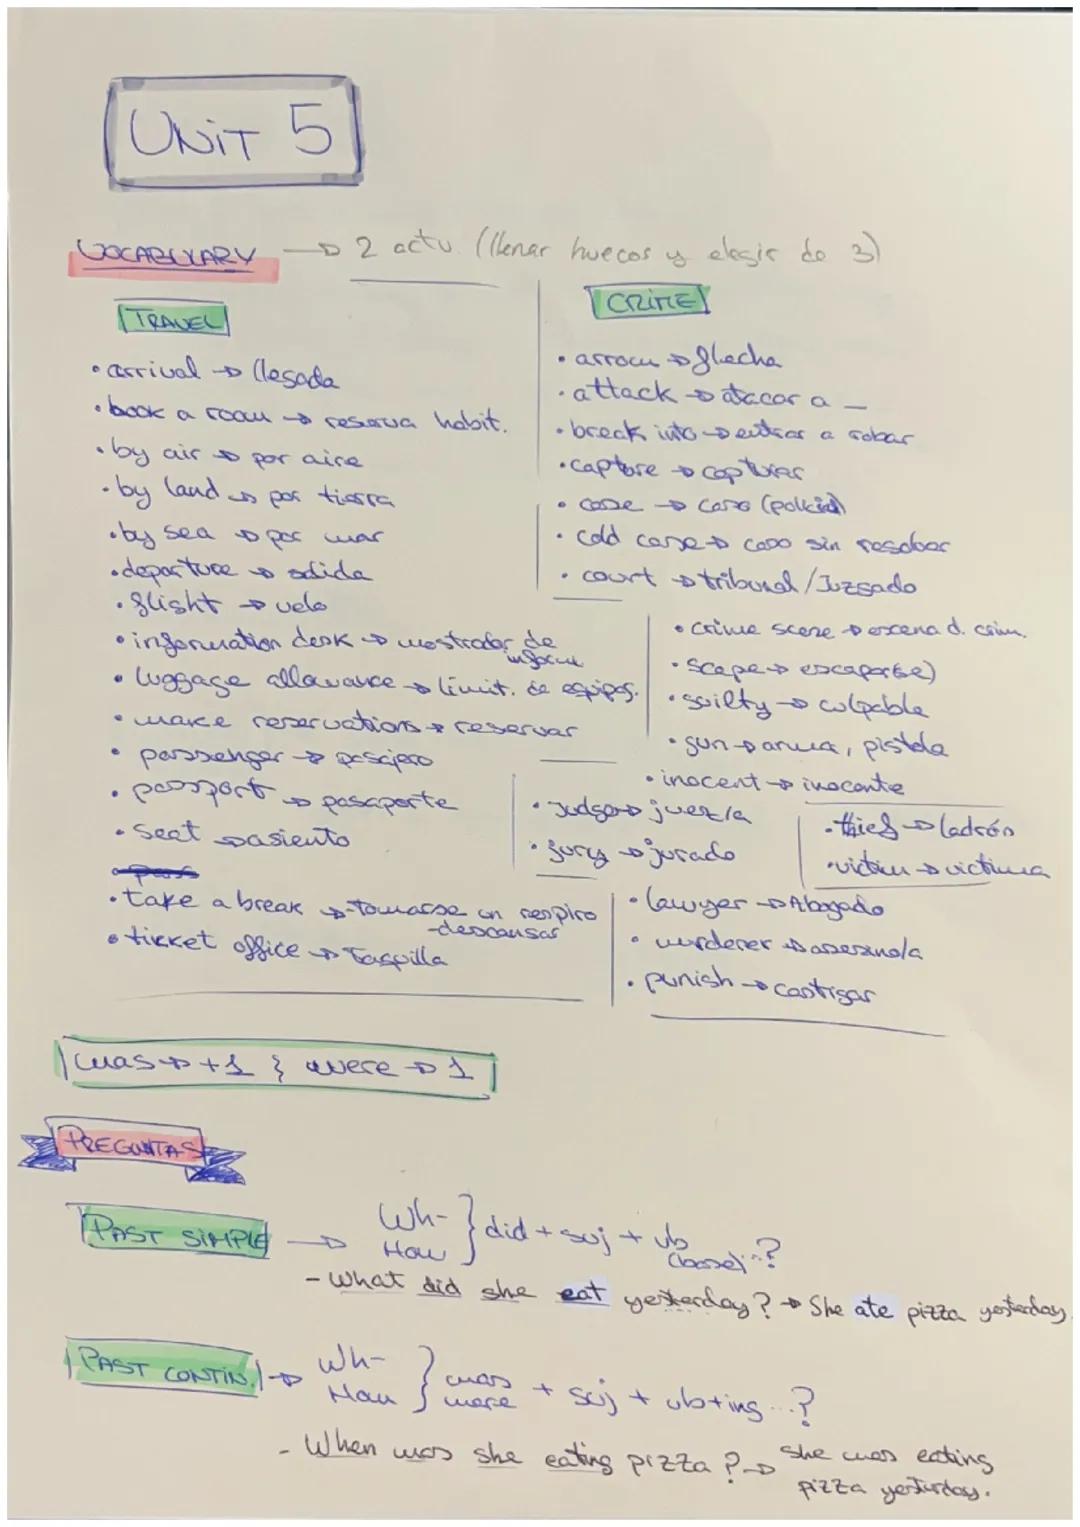 UNIT 5
VOCABULARY → 2 actv. (llenar huecos y elegir de 3)
TRAVEL
• arrival → llegada
• book a room → reserva habit.
• by air → por aire
• by land → por tierra
• by sea → por mar
• departure → salida
• flight → vuelo
• information desk → mostrador de inform
• luggage allowance → limit. de equipaj.
• make reservations → reservar
• passenger → pasajero
• passport → pasaporte
• seat → asiento
• take a break → tomarse un respiro
-descansar
• ticket office → taquilla
CRIME
• arrow → flecha
• attack → atacar a _
• break into → entrar a robar
• capture → capturar
• case → caso (policial)
• cold case → caso sin resolver
• court → tribunal / Juzgado
• crime scene → escena d. crim.
• scape → escapar(se)
• guilty → culpable
• gun → arma, pistola
• inocent → inocente
• Judge → juez/a
• jury → jurado
• thief → ladrón
• victim → victima
• lawyer → Abogado
• murderer → asesino/a
• punish → castigar
was → +1 } were → 1
PREGUNTAS
PAST SIMPLE → Wh- How } did + suj + vb (base)...?
- What did she eat yesterday? → She ate pizza yesterday.
PAST CONTIN. → Wh- How } was were + suj + vb+ing...?
- When was she eating pizza? → She was eating
pizza yesterday.